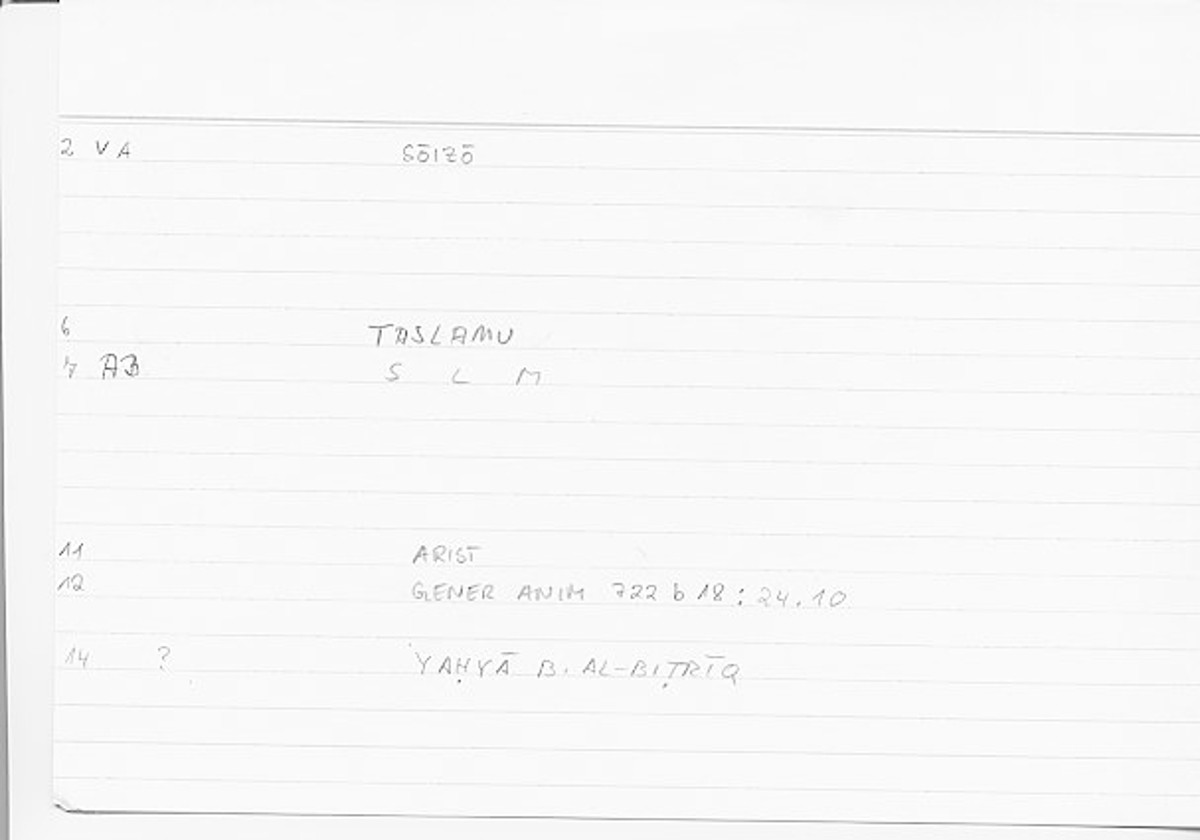 2 VA SŌIZŌ
6 TASLAMU
7 AB S L M
11 ARIST
12 GENER ANIM 722 b 18 : 24.10
14 ? YAḤYĀ B. AL-BIṬRĪQ